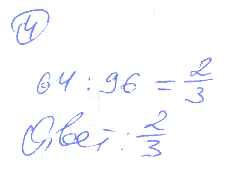 4
64 : 96 = 2/3
Ответ: 2/3